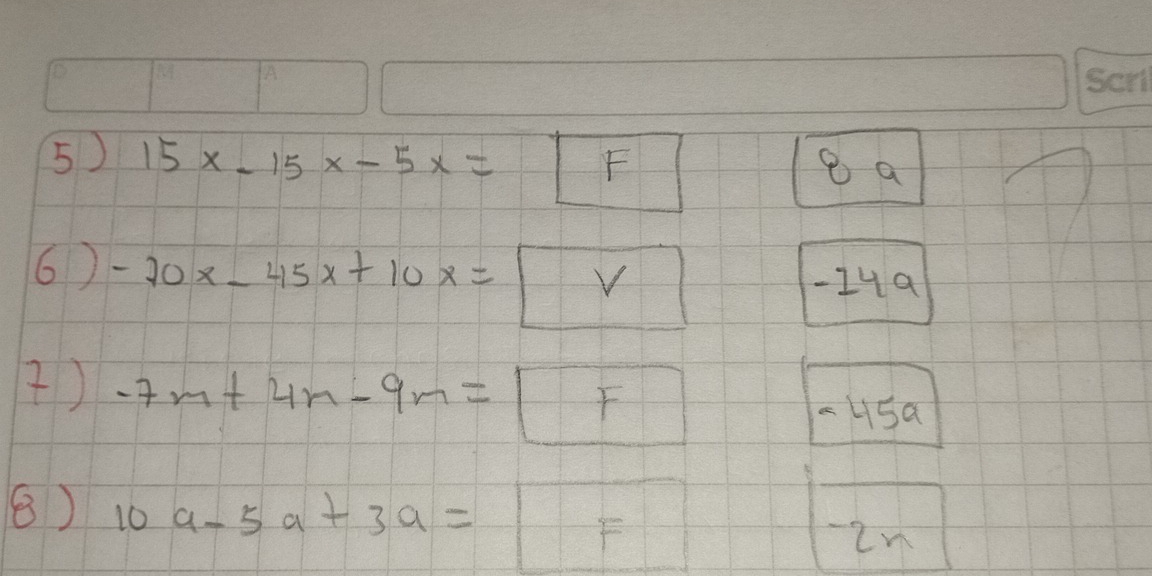 D M A Scri
5) 15x-15x-5x= F 8a
6) -70x-45x+10x= V -14a
7) -7m+4n-9m= F -45a
8) 10a-5a+3a= F -2n